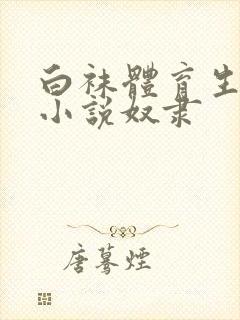 白袜體育生
小說奴隶
唐蓦煙